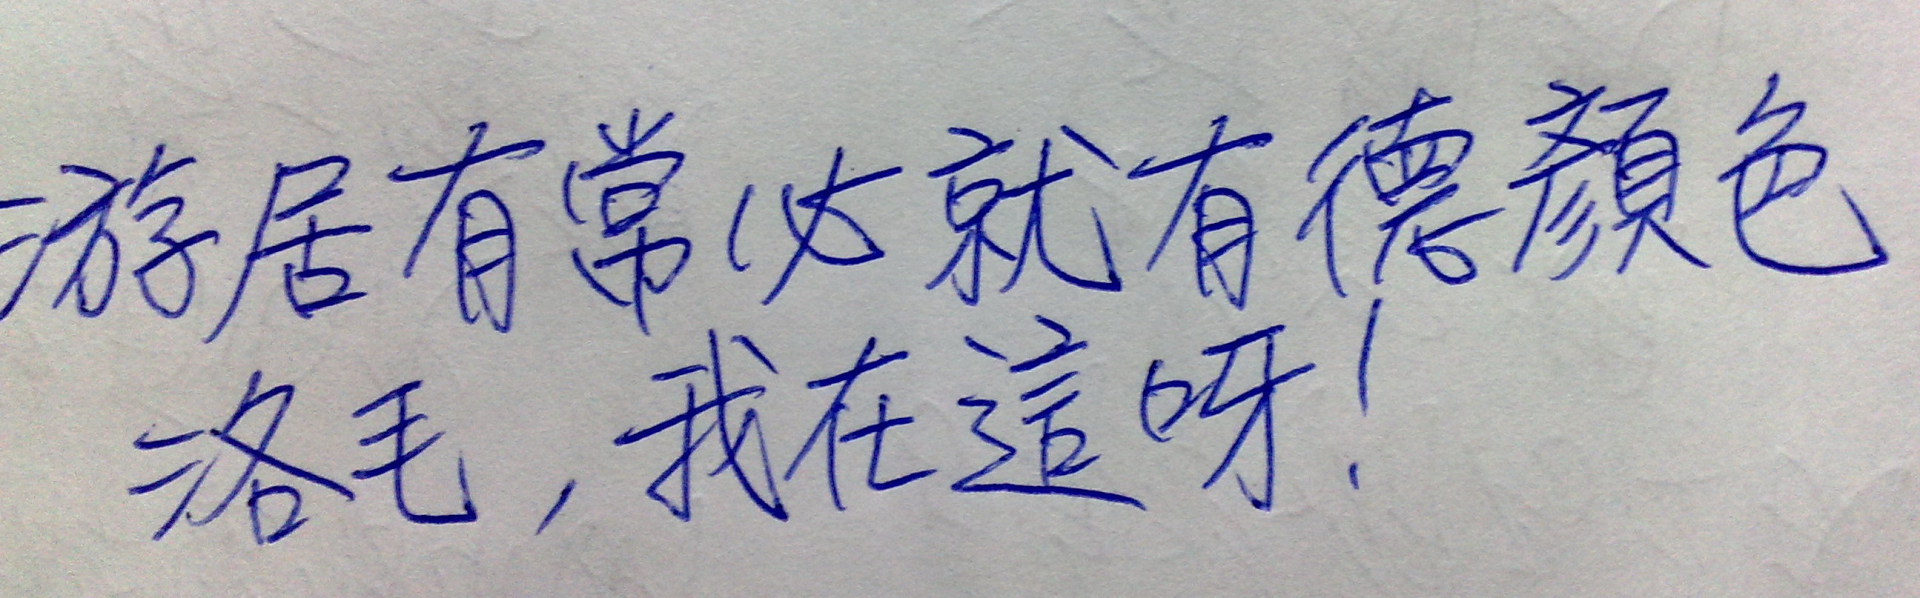 游居有常必就有德顏色
洛毛,我在這呀!